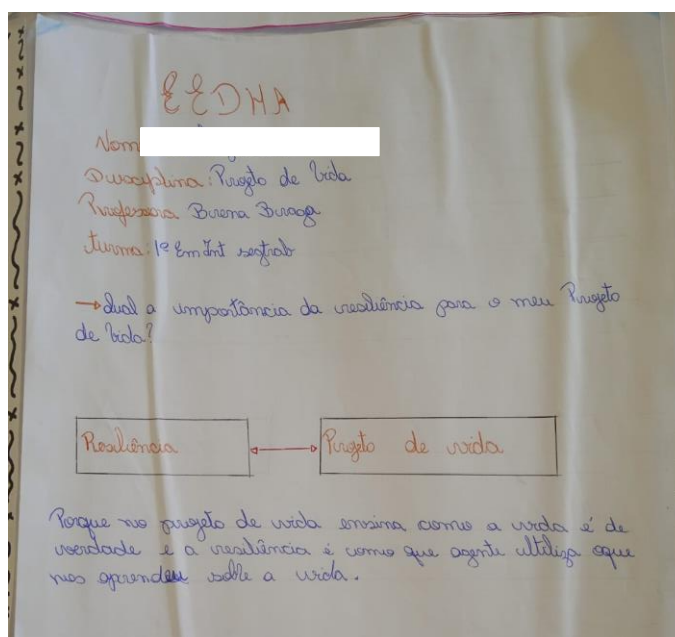 EEDHA
Nom
Disciplina: Projeto de Vida
Professora Brena Braga
turma: 1º Em Int segtrab
→ Qual a importância da resiliência para o meu Projeto
de Vida?
Resiliência ↔ Projeto de vida
Porque no projeto de vida ensina como a vida é de
verdade e a resiliência é como que agente ultiliza oque
nos aprendeu sobre a vida.